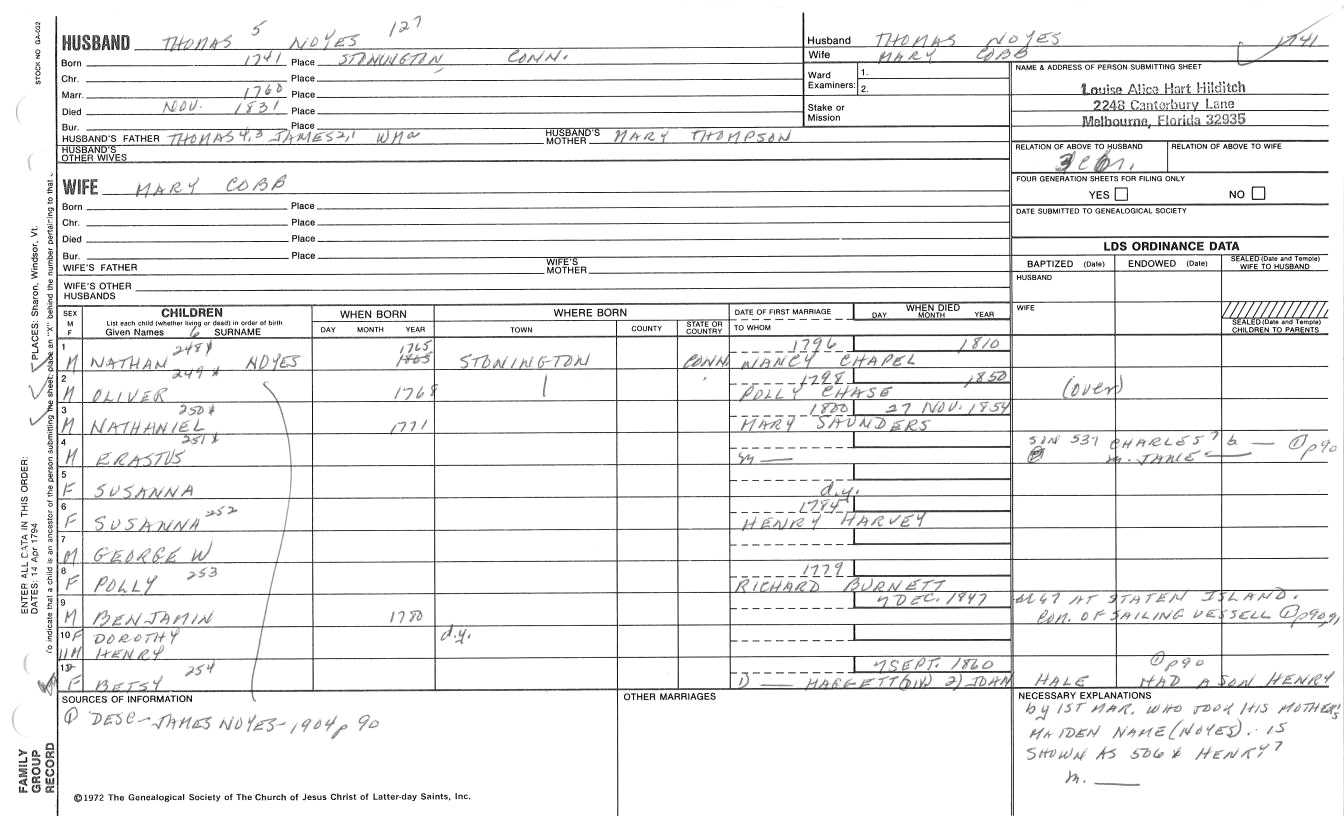 STOCK NO GA-032
HUSBAND THOMAS 5 NOYES 127
Born 1741 Place STONINGTON CONN.
Chr. Place
Marr. 1760 Place
Died NOV. 1831 Place
Bur. Place
HUSBAND'S FATHER THOMAS 4,3 JAMES 2,1 WM a HUSBAND'S MOTHER MARY THOMPSON
HUSBAND'S OTHER WIVES
Husband THOMAS NOYES 1741
Wife MARY COBB
Ward Examiners: 1. 2.
Stake or Mission
NAME & ADDRESS OF PERSON SUBMITTING SHEET
Louise Alice Hart Hilditch
2248 Canterbury Lane
Melbourne, Florida 32935
RELATION OF ABOVE TO HUSBAND RELATION OF ABOVE TO WIFE
FOUR GENERATION SHEETS FOR FILING ONLY
YES NO
DATE SUBMITTED TO GENEALOGICAL SOCIETY
WIFE MARY COBB
Born Place
Chr. Place
Died Place
Bur. Place
WIFE'S FATHER WIFE'S MOTHER
WIFE'S OTHER HUSBANDS
LDS ORDINANCE DATA
BAPTIZED (Date) ENDOWED (Date) SEALED (Date and Temple) WIFE TO HUSBAND
HUSBAND
WIFE
SEALED (Date and Temple) CHILDREN TO PARENTS
SEX M F CHILDREN List each child (whether living or dead) in order of birth Given Names 6 SURNAME
WHEN BORN DAY MONTH YEAR
WHERE BORN TOWN COUNTY STATE OR COUNTRY
DATE OF FIRST MARRIAGE TO WHOM
WHEN DIED DAY MONTH YEAR
1 M NATHAN 248 x NOYES 1765 1865 STONINGTON CONN 1796 NANCY CHAPEL 1810
2 M OLIVER 249 x 1768 1798 POLLY CHASE 1850 (over)
3 M NATHANIEL 250 x 1771 1800 MARY SAUNDERS 27 NOV. 1854
4 M ERASTUS 251 x m — SON 537 CHARLES 7 b — ① p90
m. JANE —
5 F SUSANNA d.y.
6 F SUSANNA 252 1784 HENRY HARVEY
7 M GEORGE W
8 F POLLY 253 1779 RICHARD BURNETT
9 M BENJAMIN 1780 7 DEC. 1847 AT STATEN ISLAND.
COM. OF SAILING VESSELL ① p90,91
10 F DOROTHY d.y.
11 M HENRY
12 F BETSY 254 1) — HAGGETT (DIV) 2) JOHN HALE 7 SEPT. 1860 ① p90 HAD A SON HENRY
SOURCES OF INFORMATION
① DESC - JAMES NOYES - 1904 p 90
OTHER MARRIAGES
NECESSARY EXPLANATIONS
by 1ST MAR. WHO TOOK HIS MOTHER'S
MAIDEN NAME (NOYES). IS
SHOWN AS 506 x HENRY 7
m. —
©1972 The Genealogical Society of The Church of Jesus Christ of Latter-day Saints, Inc.
FAMILY GROUP RECORD
ENTER ALL DATA IN THIS ORDER:
DATES: 14 Apr 1794
PLACES: Sharon, Windsor, Vt.
To indicate that a child is an ancestor of the person submitting the sheet, place an "X" behind the number pertaining to that